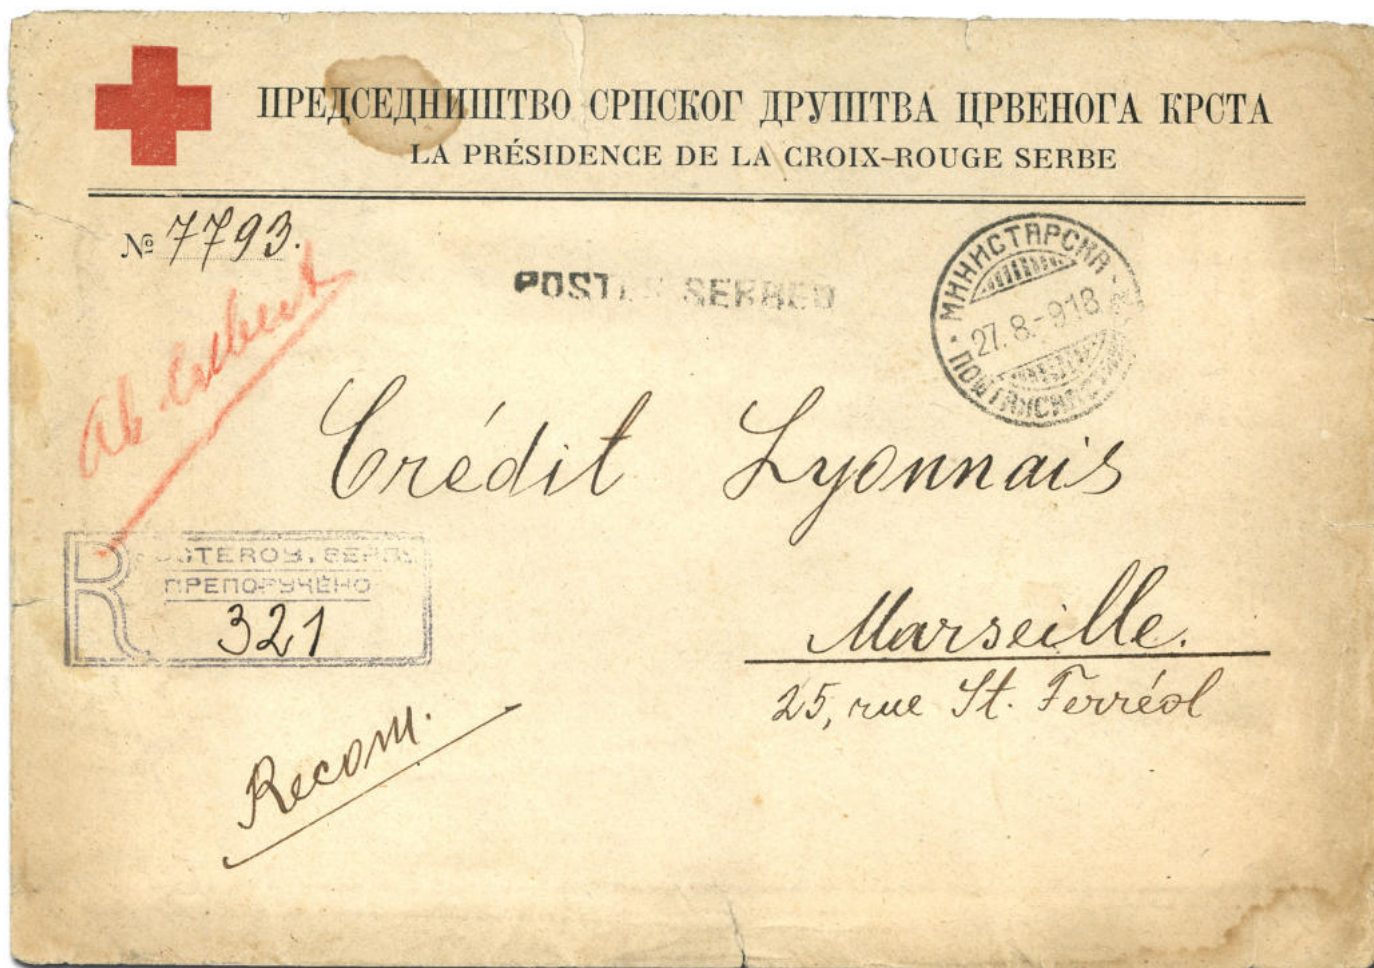 ПРЕДСЕДНИШТВО СРПСКОГ ДРУШТВА ЦРВЕНОГА КРСТА
LA PRÉSIDENCE DE LA CROIX-ROUGE SERBE
№ 7793.
POSTES SERBES
МИНИСТАРСКА
27.8.-918
ПОШТАНСКА
Crédit Lyonnais
R
ПРЕПОРУЧЕНО
321
Marseille.
25, rue St. Ferréol
Recom.